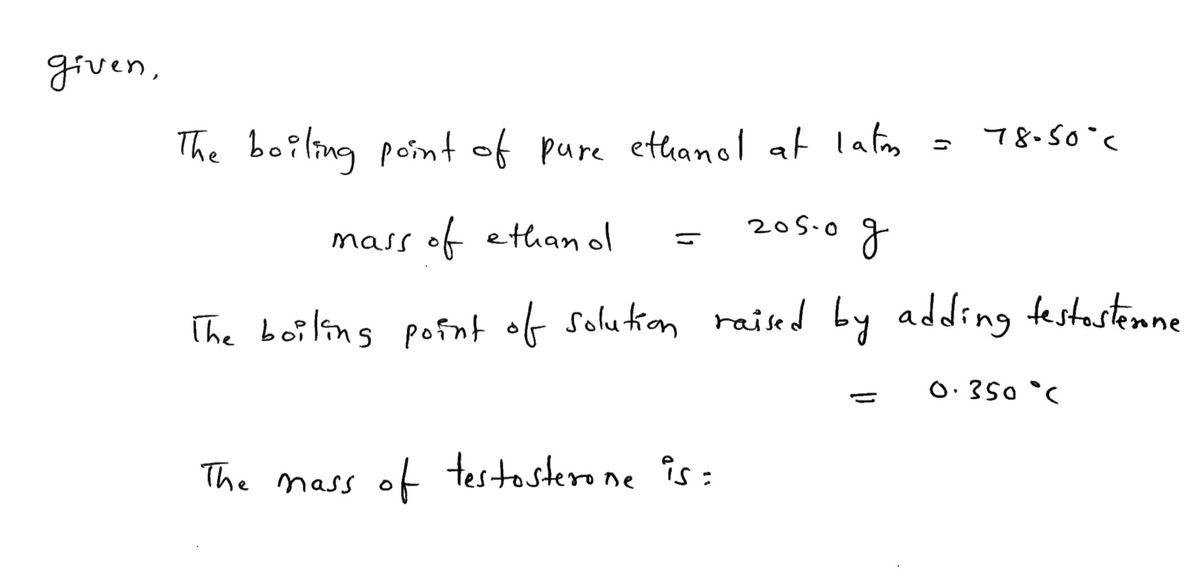 given,
The boiling point of pure ethanol at 1atm = 78.50°C
mass of ethanol = 205.0 g
The boiling point of solution raised by adding testosterone
= 0.350 °C
The mass of testosterone is: